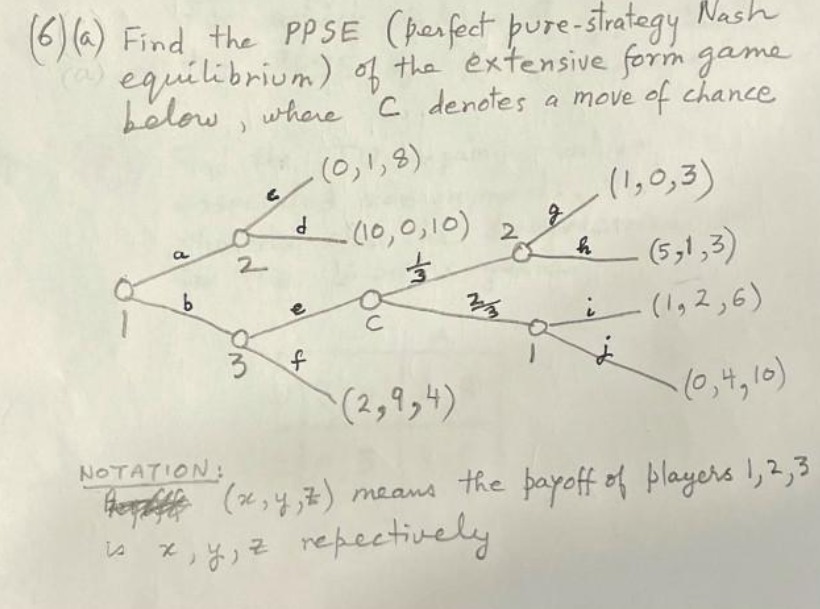 (6)(a) Find the PPSE (perfect pure-strategy Nash
equilibrium) of the extensive form game
below, where C denotes a move of chance
(0,1,8)
c
(1,0,3)
g
d
(10,0,10)
2
a
2
h
(5,1,3)
1/3
1
b
e
C
2/3
i
(1,2,6)
3
f
1
j
(0,4,10)
(2,9,4)
NOTATION:
(x,y,z) means the payoff of players 1,2,3
is x, y, z repectively